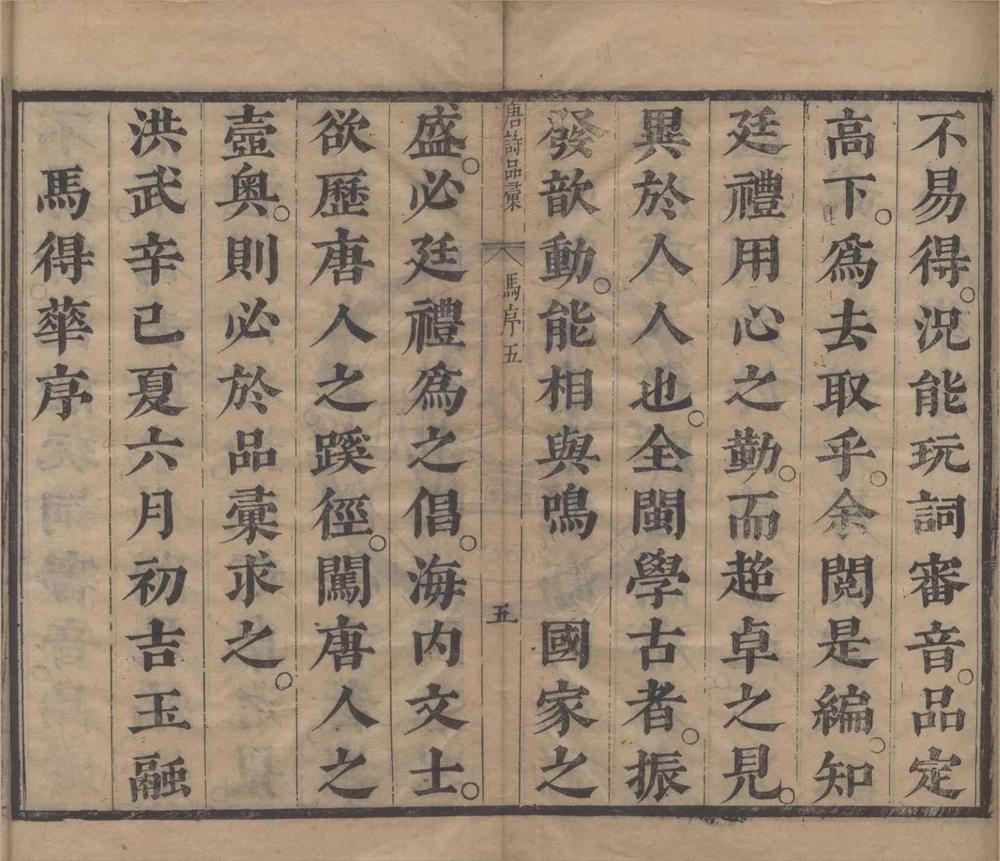 不易得。況能玩詞審音。品定
高下。爲去取乎。余閱是編。知
廷禮用心之勤。而超卓之見。
異於人人也。全閩學古者。振
發歆動。能相與鳴　國家之
唐詩品彙　馬序五　五
盛。必廷禮爲之倡。海内文士。
欲歷唐人之蹊徑。闖唐人之
壼奥。則必於品彙求之。
洪武辛巳夏六月初吉玉融
馬得華序